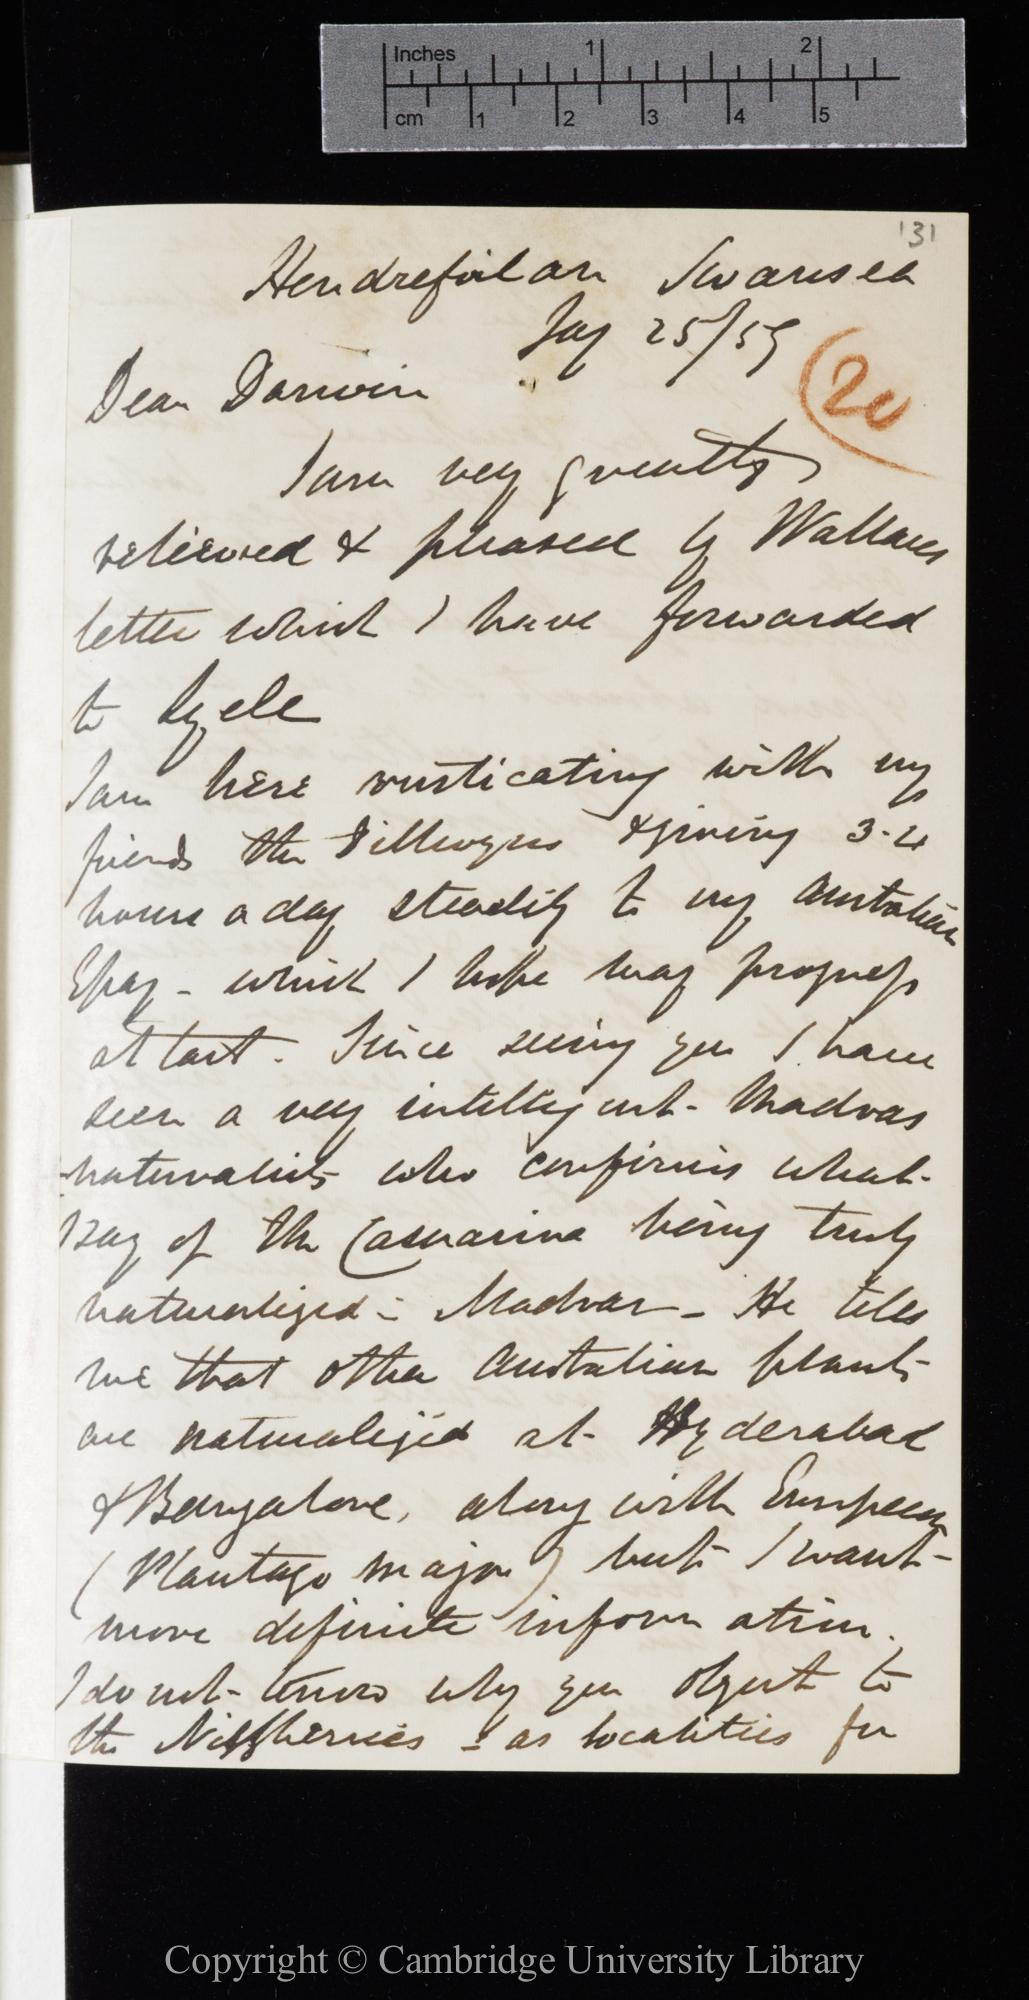 Inches 1 2
cm 1 2 3 4 5
131
Hendrefoilan Swansea
Jany 25/59
20
Dear Darwin
I am very greatly
relieved & pleased by Wallaces
letter which I have forwarded
to Lyell
I am here rusticating with my
friends the Dillwyns & giving 3-4
hours a day steadily to my Australian
Essay - which I hope may progress
at last. Since seeing you I have
seen a very intelligent Madras
naturalist who confirms what
I say of the Casuarina being truly
naturalized in Madras - He tells
me that other Australian plants
are naturalized at Hyderabad
& Bangalore, along with European
(Plantago major) but I want
more definite information.
I do not know why you object to
the Nilghherries as localities for
Copyright © Cambridge University Library